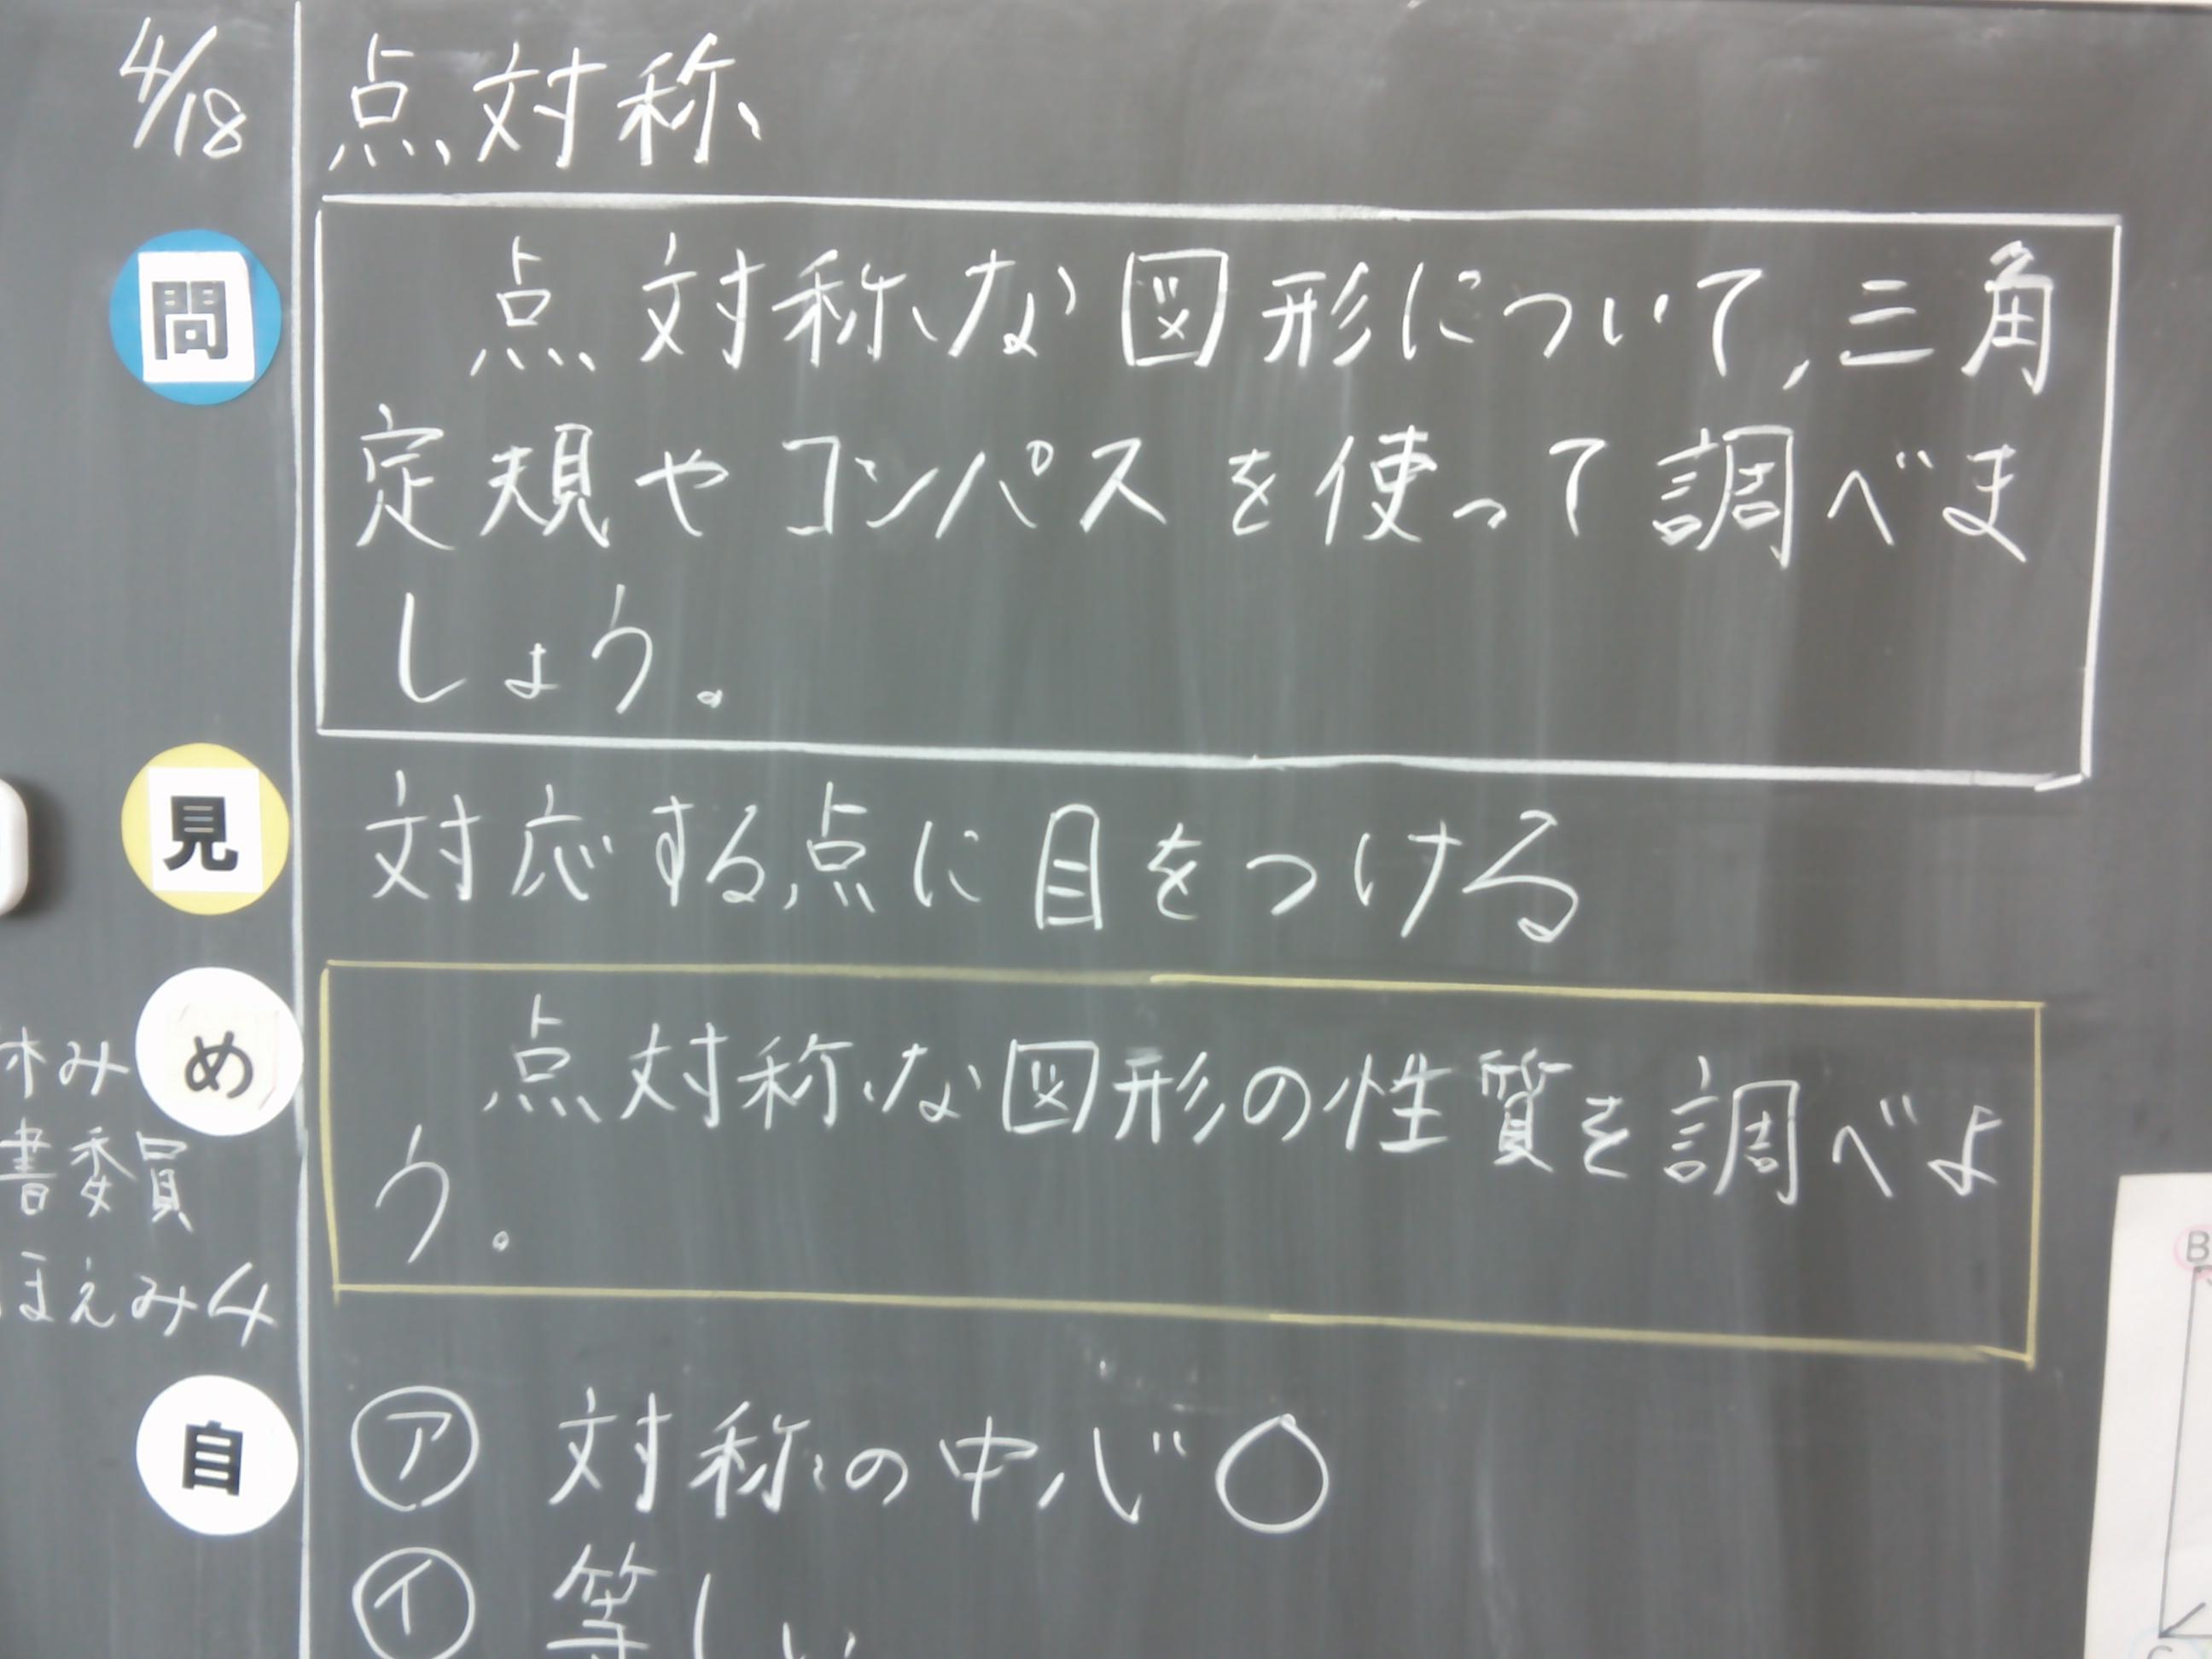 4/18 点対称
問 点対称な図形について,三角
定規やコンパスを使って調べま
しょう。
見 対応する点に目をつける
め 点対称な図形の性質を調べよ
う。
休み
書委員
ほえみ4
自 ㋐ 対称の中心〇
㋑ 等しい
B
C